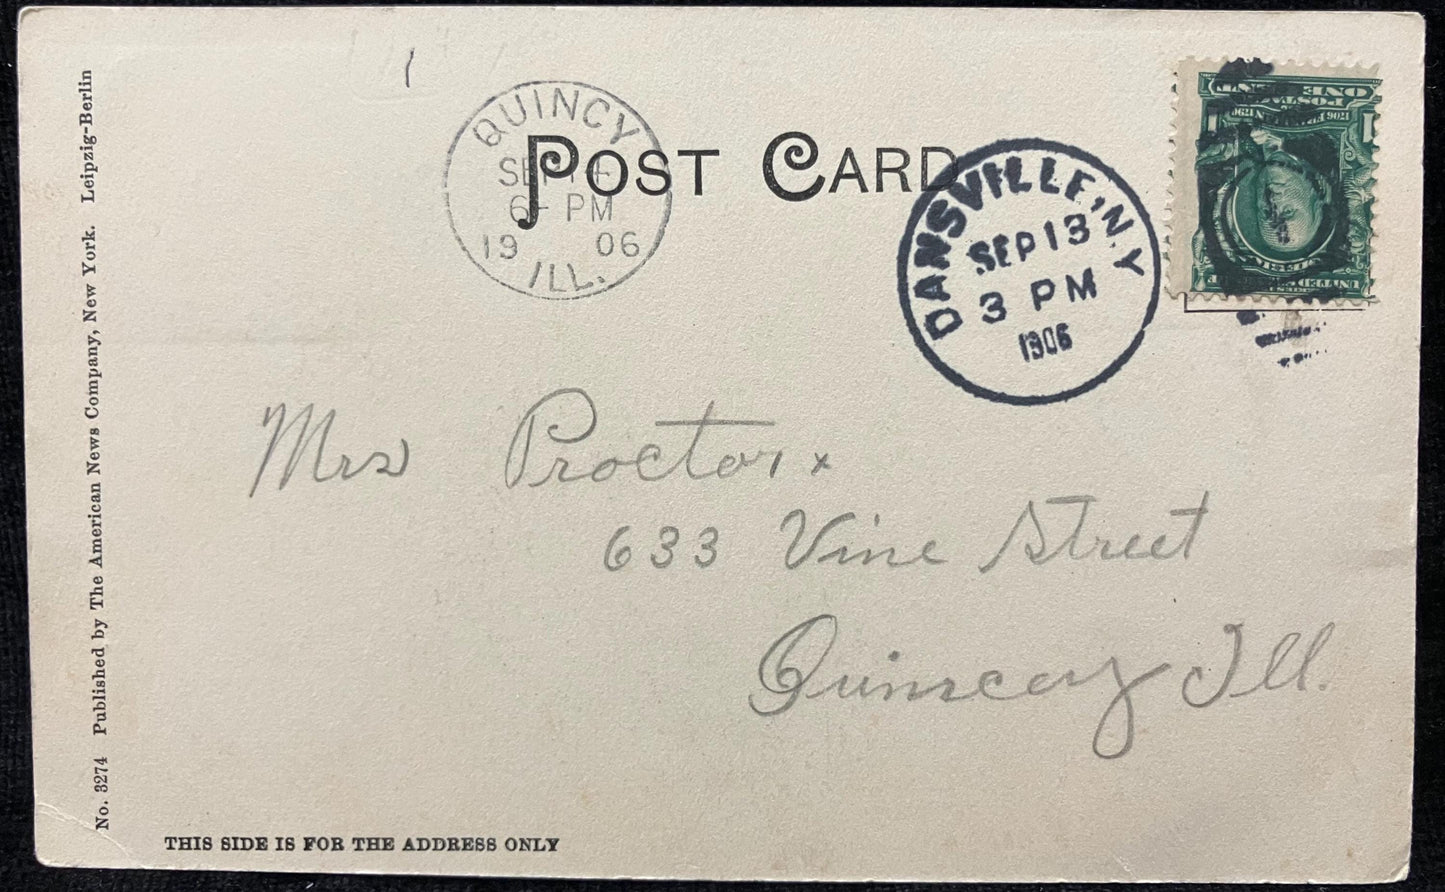 No. 3274 Published by The American News Company, New York. Leipzig-Berlin
POST CARD
QUINCY
SEP 14
6- PM
19 06
ILL.
DANSVILLE, N.Y.
SEP 13
3 PM
1906
ONE
POSTAGE
1 1
Mrs Proctor.
633 Vine Street
Quincey Ill.
THIS SIDE IS FOR THE ADDRESS ONLY